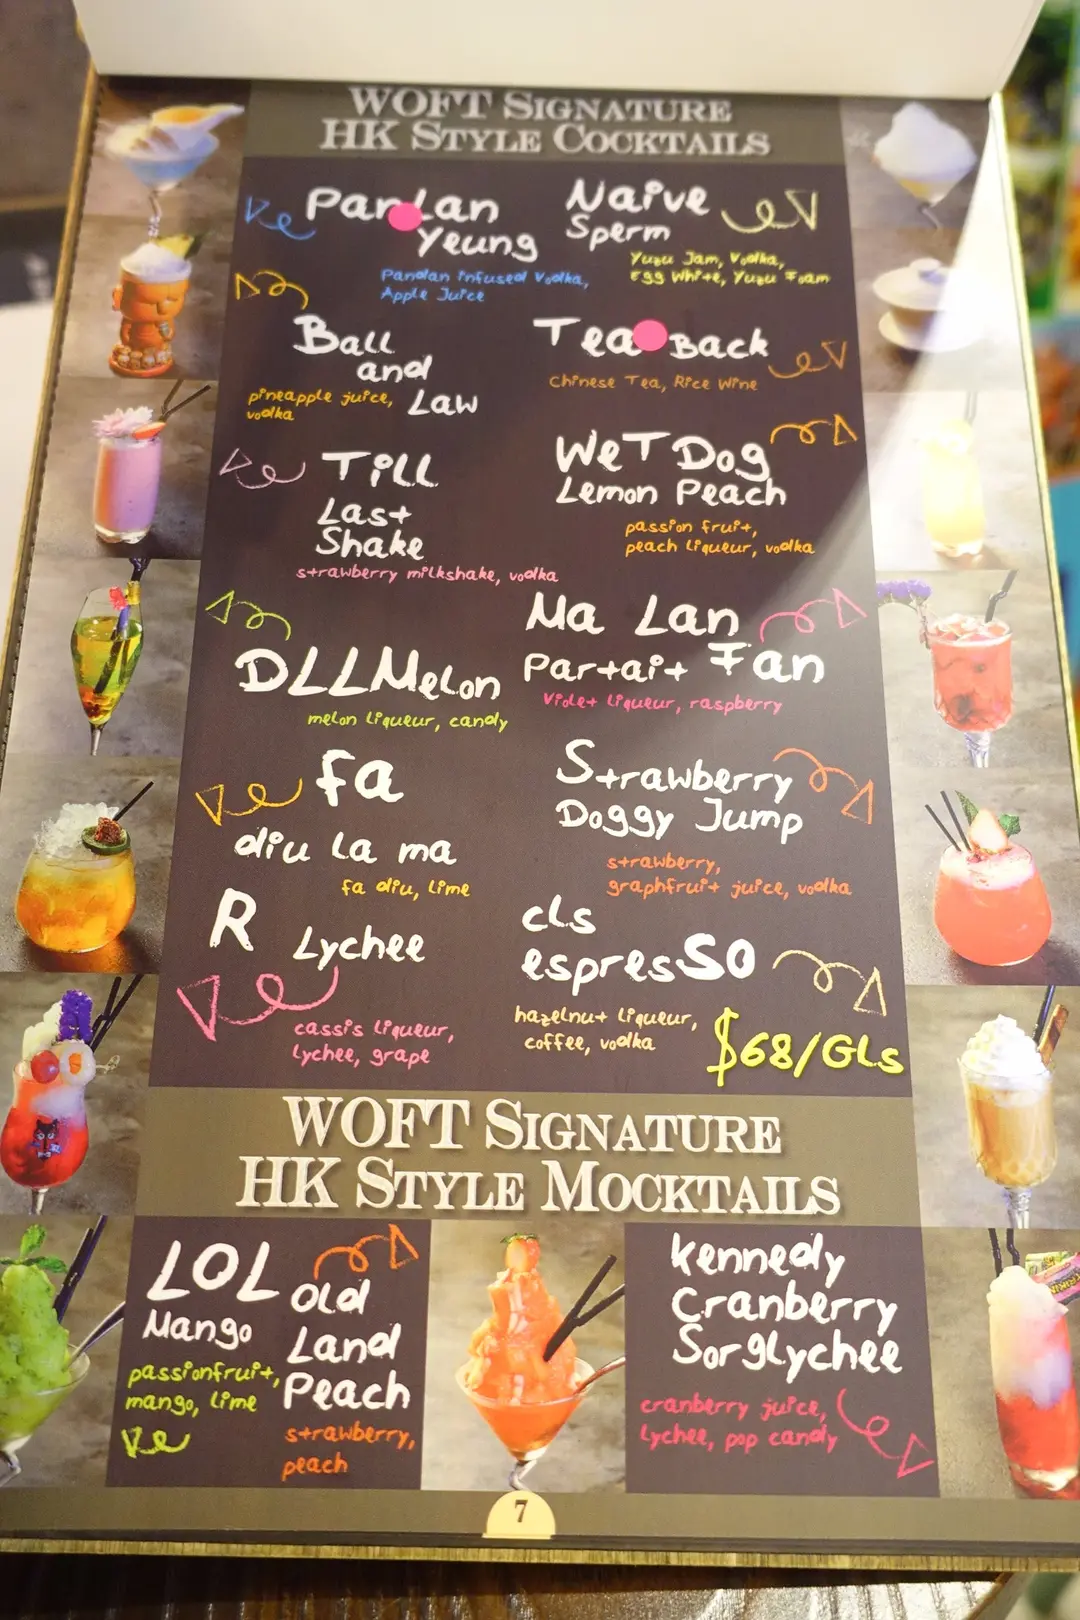 WOFT SIGNATURE
HK STYLE COCKTAILS
Pan Lan
Yeung
Pandan infused Vodka,
Apple Juice
Naive
Sperm
Yuzu Jam, Vodka,
Egg White, Yuzu Foam
Ball
and
Law
pineapple juice,
vodka
Tea Back
Chinese Tea, Rice Wine
Till
Last
Shake
strawberry milkshake, vodka
Wet Dog
Lemon Peach
passion fruit,
peach liqueur, vodka
DLLMelon
melon liqueur, candy
Ma Lan
Partait Fan
Violet liqueur, raspberry
fa
diu la ma
fa diu, lime
Strawberry
Doggy Jump
strawberry,
graphfruit juice, vodka
R
Lychee
cassis liqueur,
lychee, grape
cls
espresSO
hazelnut liqueur,
coffee, vodka
$68/GLs
WOFT SIGNATURE
HK STYLE MOCKTAILS
LOL
Mango
passionfruit,
mango, lime
Old
Land
Peach
strawberry,
peach
Kennedy
Cranberry
Sorglychee
cranberry juice,
lychee, pop candy
7